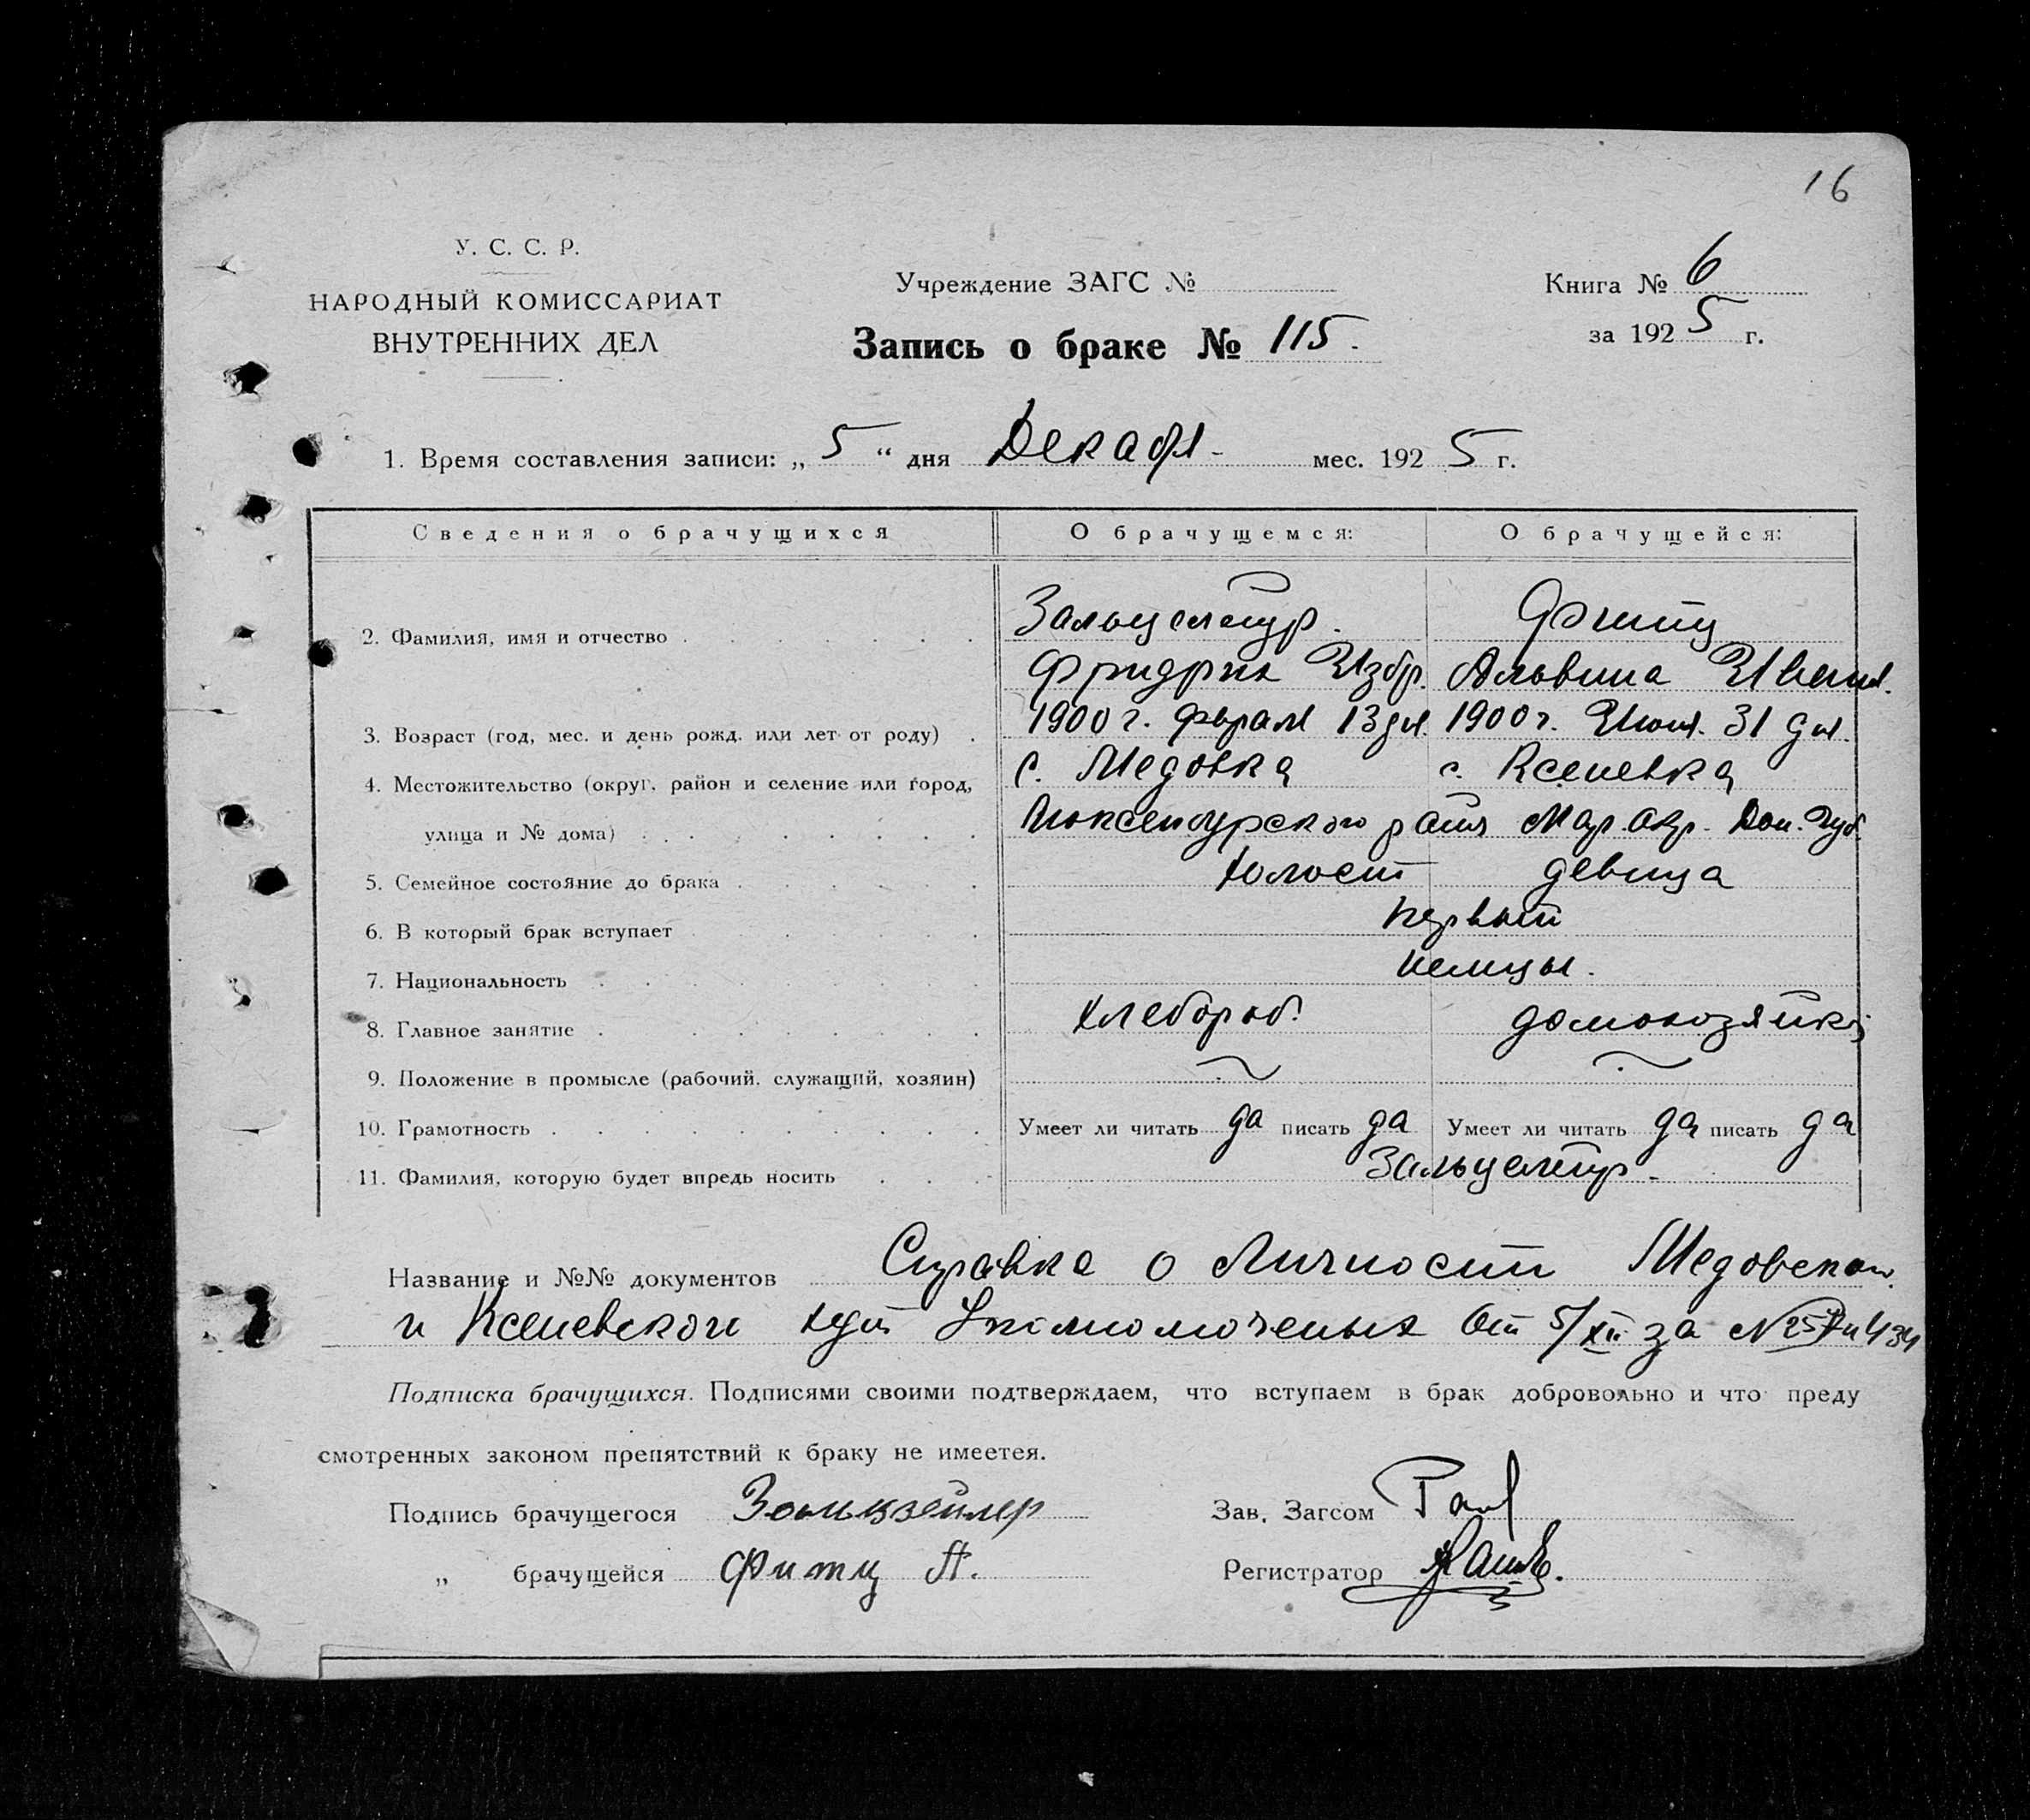 16
У. С. С. Р.
НАРОДНЫЙ КОМИССАРИАТ
ВНУТРЕННИХ ДЕЛ
Учреждение ЗАГС №
Запись о браке № 115.
Книга № 6
за 1925 г.
1. Время составления записи: „ 5 “ дня Декабл- мес. 1925 г.
Сведения о брачущихся О брачущемся: О брачущейся:
2. Фамилия, имя и отчество Фитц
Фридрих Альвина Иван.
3. Возраст (год, мес. и день рожд. или лет от роду) 1900 г. 13 дн. 1900 г. 31 дн.
4. Местожительство (округ, район и селение или город, с. Медовка с. Ксеневка
улица и № дома) Мар. окр. Дон. Губ.
5. Семейное состояние до брака холост девица
6. В который брак вступает первый
7. Национальность немцы.
8. Главное занятие хлебороб. домохозяйка
9. Положение в промысле (рабочий, служащий, хозяин)
10. Грамотность Умеет ли читать да писать да Умеет ли читать да писать да
11. Фамилия, которую будет впредь носить
Название и №№ документов Справка о Личности Медовской
и Ксеневской от 5/XII за №
Подписка брачущихся. Подписями своими подтверждаем, что вступаем в брак добровольно и что преду
смотренных законом препятствий к браку не имеетея.
Подпись брачущегося Зальцзейлер
Зав. Загсом
„ брачущейся Фитц А.
Регистратор